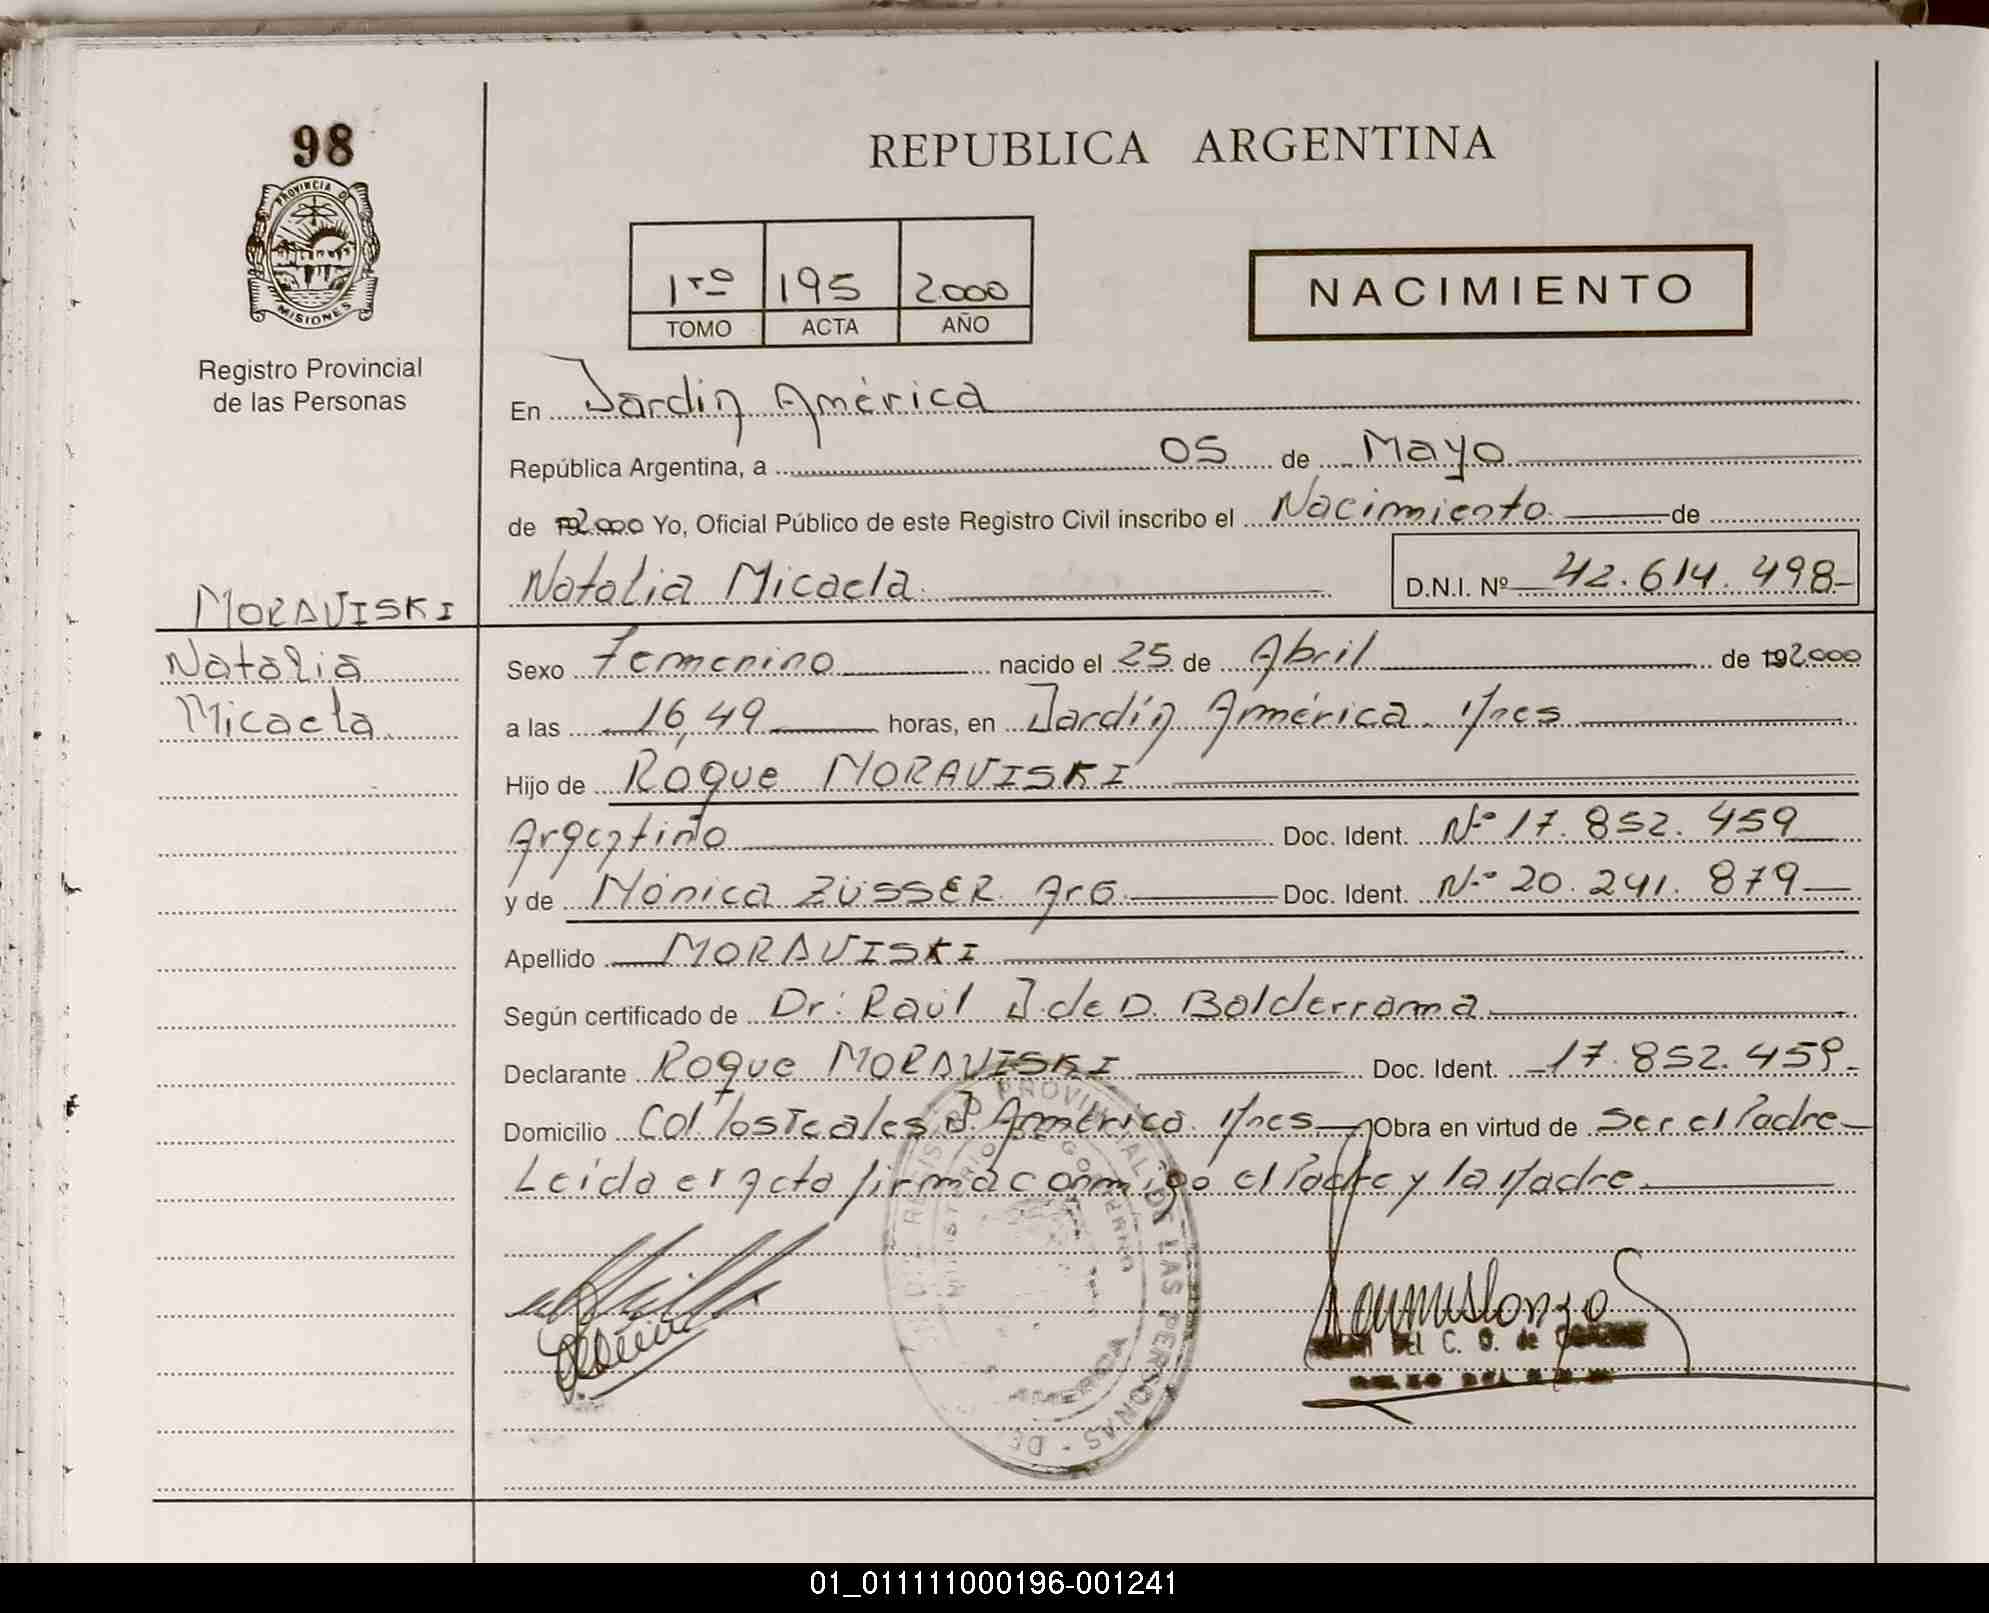 98
PROVINCIA DE
MISIONES
Registro Provincial
de las Personas
REPUBLICA ARGENTINA
1ro 195 2000
TOMO ACTA AÑO
NACIMIENTO
En Jardín América
República Argentina, a 05 de Mayo
de 192.000 Yo, Oficial Público de este Registro Civil inscribo el Nacimiento de
Natalia Micaela D.N.I. Nº 42.614.498-
MORAVISKI
Natalia
Micaela
Sexo Femenino nacido el 25 de Abril de 192.000
a las 16,49 horas, en Jardín América. Mnes
Hijo de Roque MORAVISKI
Argentino Doc. Ident. Nº 17.852.459
y de Mónica ZÜSSER. Arg. Doc. Ident. Nº 20.241.879
Apellido MORAVISKI
Según certificado de Dr: Raúl J. de D. Balderrama
Declarante Roque MORAVISKI Doc. Ident. 17.852.459.
Domicilio Col. los Teales J. América. Mnes Obra en virtud de Ser el Padre
Leída el Acta firma conmigo el Padre y la Madre
PROVINCIAL DE LAS PERSONAS - DE
GOBIERNO
AMERICA
DEL C. de
01_011111000196-001241